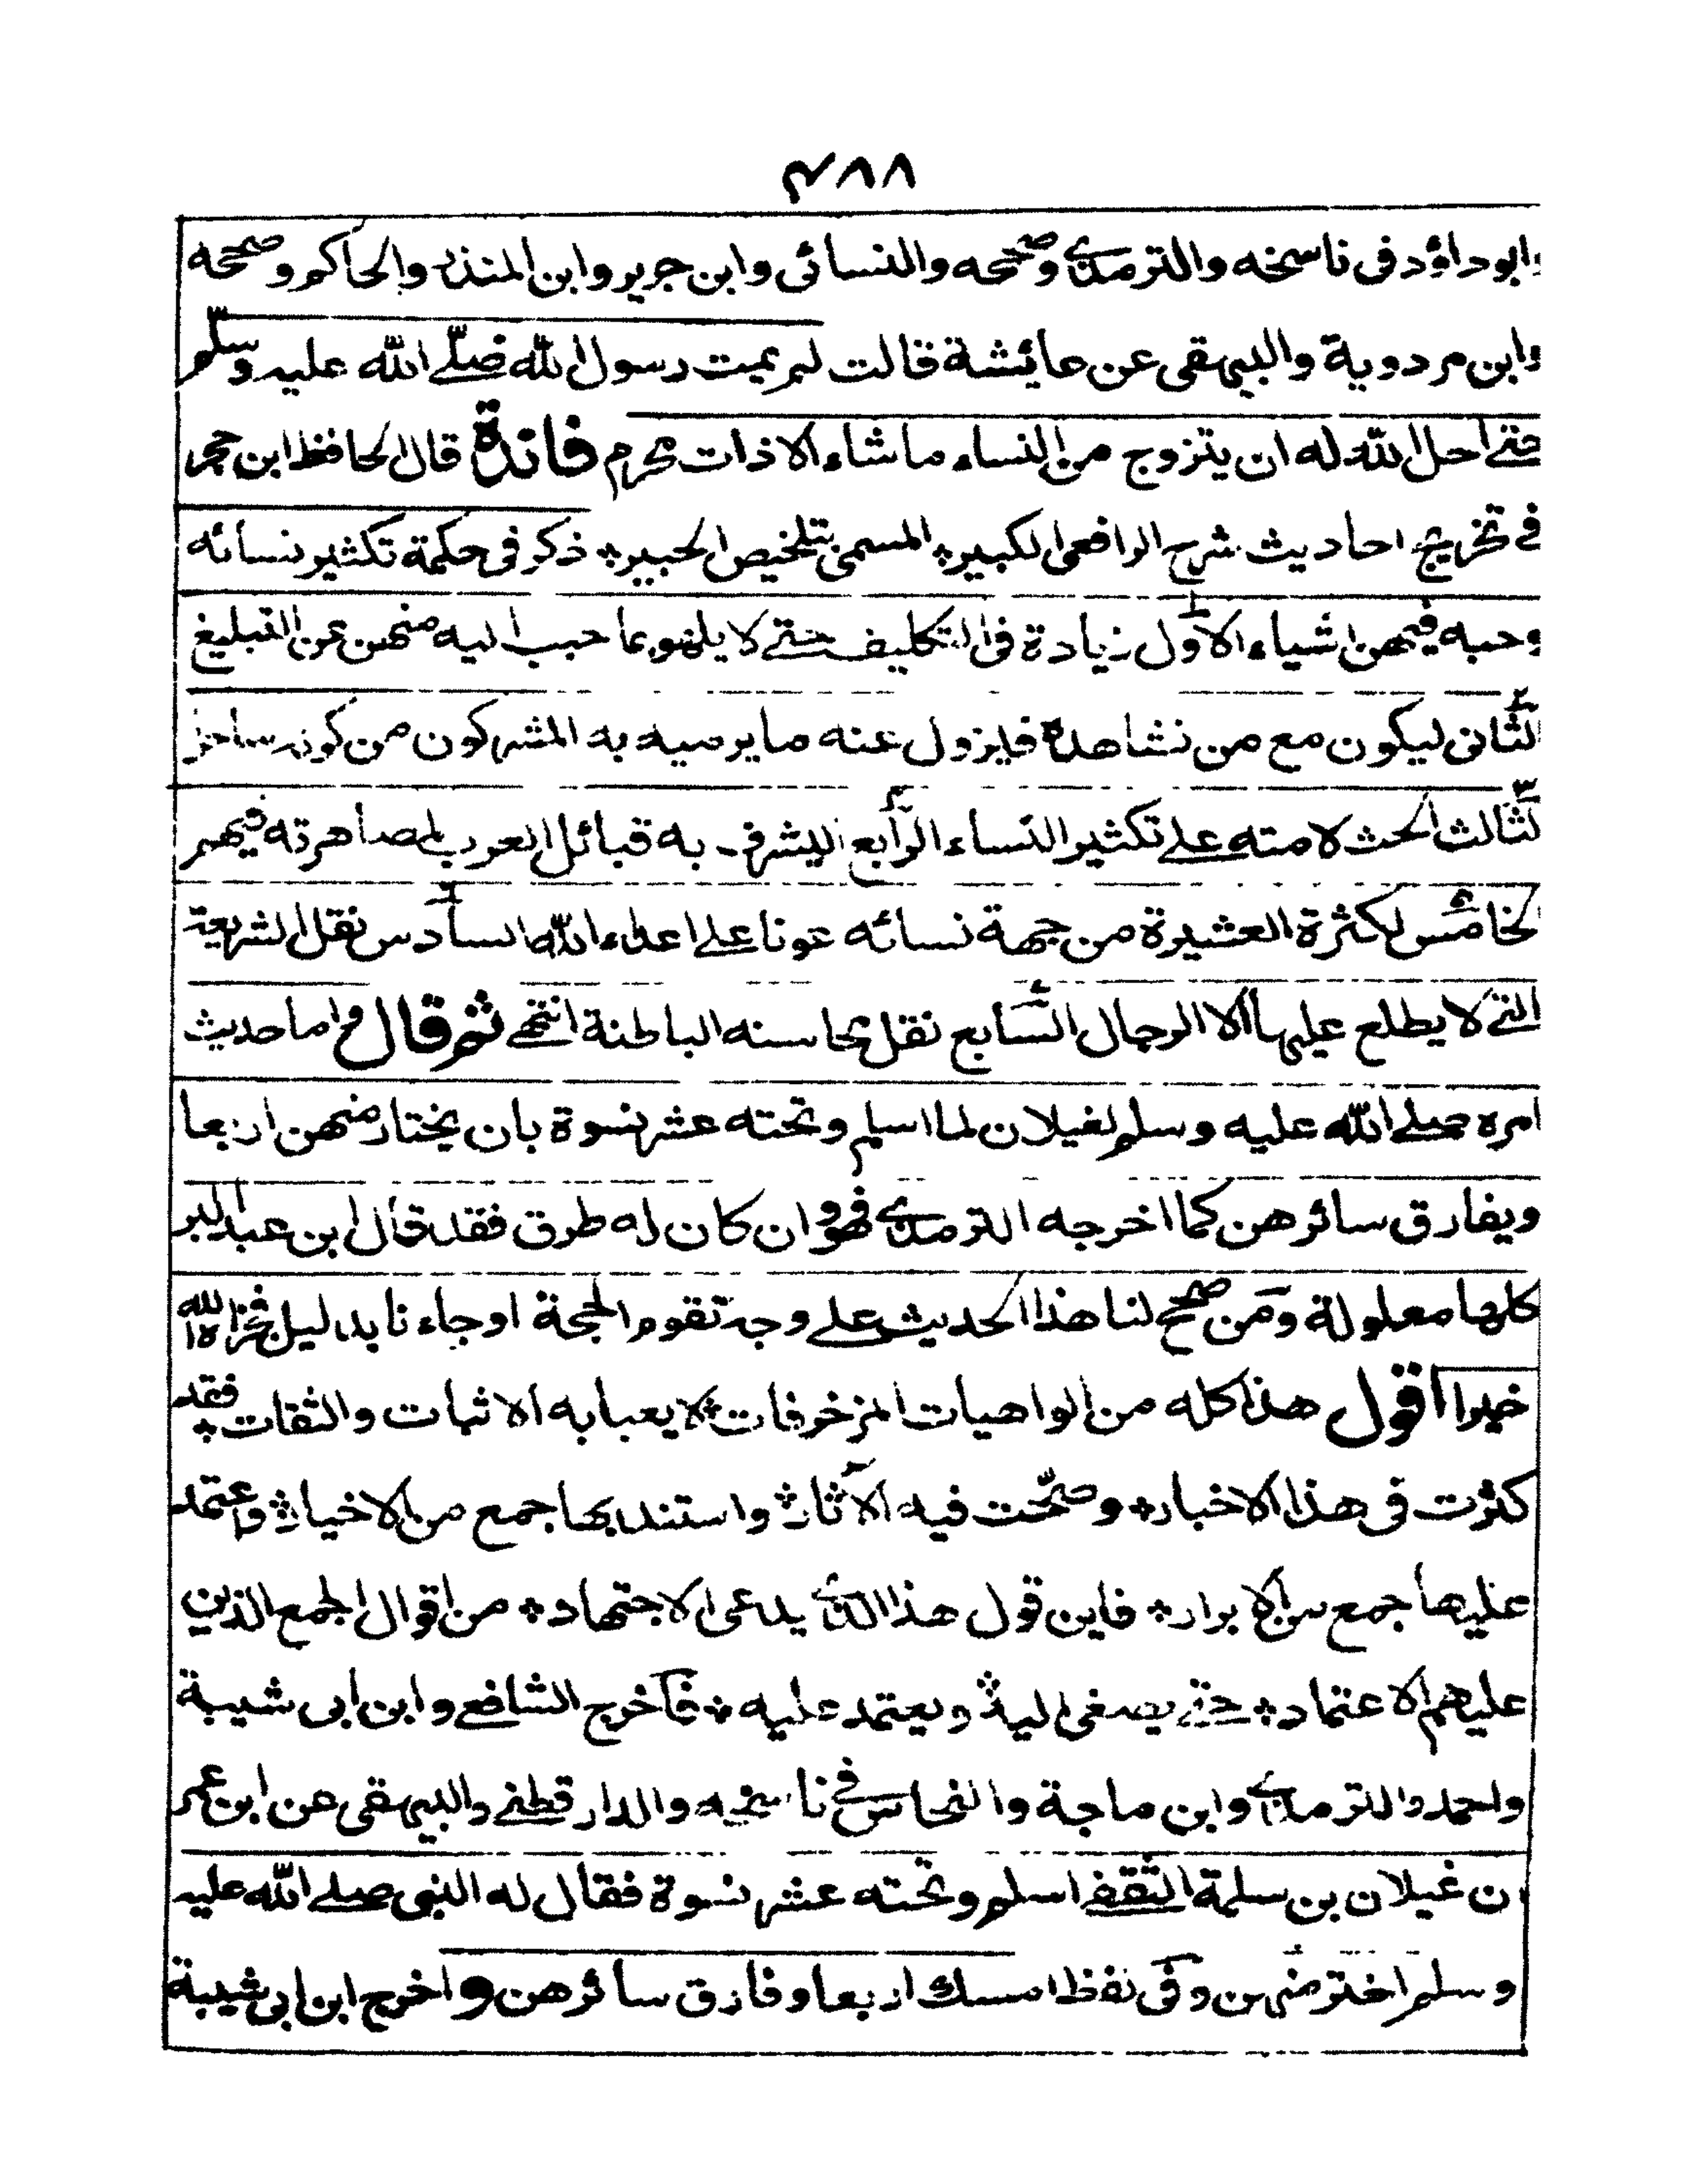 ۴۸۸
وابوداؤد فى ناسخه والترمذي وصححه والنسائى وابن جرير وابن المنذر والحاكم وصححه
وابن مردوية والبيهقى عن عائشة قالت لم يمت رسول الله صلے الله عليه وسلم
حتے احل الله له ان يتزوج من النساء ماشاء الا ذات محرم فائدة قال الحافظ ابن حجر
فے تخريج احاديث شرح الرافعى الكبير؞ المسمى بتلخيص الحبير؞ ذكر فى حكمة تكثير نسائه
وحبه فيهن اشياء الاول زيادة فى التكليف حتے لا يلهو بما حبب اليه منهن عن التبليغ
لثانى ليكون مع من نشاهده فيزول عنه ما يرميه به المشركون من كونه ساحرا
لثالث الحث لامته علے تكثير النساء الرابع ليشرف به قبائل العرب لمصاهرته فيهم
لخامس لكثرة العشيرة من جهة نسائه عونا علے اعداء الله السادس نقل الشريعة
التے لا يطلع عليها الا الرجال السابع نقل محاسنه الباطنة انتهے ثم قال م اما حديث
امره صلے الله عليه وسلم لغيلان لما اسلم وتحته عشر نسوة بان يختار منهن اربعا
ويفارق سائرهن كما اخرجه الترمذي فهو وان كان له طرق فقد قال ابن عبد البر
كلها معلولة ومن صحح لنا هذا الحديث علے وجه تقوم الحجة او جاءنا بدليل فجزاه الله
خيرا اقول هذا كله من الواهيات المزخرفات؞ لا يعبا به الاثبات والثقات؞ فقد
كثرت فى هذا الاخبار؞ وصحت فيه الآثار؞ واستند بها جمع من الاخيار؞ واعتمد
عليها جمع من الابرار؞ فاين قول هذا الذي يدعى الاجتهاد؞ من اقوال الجمع الذين
عليهم الاعتماد؞ حتے يصغى اليه؞ ويعتمد عليه؞ فاخرج الشافعے وابن ابى شيبة
واحمد والترمذي وابن ماجة والنحاس فے ناسخه والدارقطنے والبيهقى عن ابن عمر
ن غيلان بن سلمة الثقفے اسلم وتحته عشر نسوة فقال له النبى صلے الله عليه
وسلم اختر منهن وفى لفظ امسك اربعا وفارق سائرهن واخرج ابن ابى شيبة